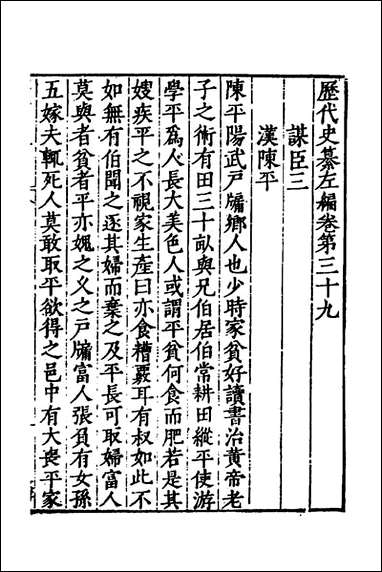 歷代史纂左編卷第三十九
謀臣三
漢陳平
陳平陽武戶牖鄉人也少時家貧好讀書治黃帝老
子之術有田三十畝與兄伯居伯常耕田縱平使游
學平爲人長大美色人或謂平貧何食而肥若是其
嫂疾平之不視家生產曰亦食糟覈耳有叔如此不
如無有伯聞之逐其婦而棄之及平長可取婦富人
莫與者貧者平亦媿之乂之戶牖富人張負有女孫
五嫁夫輒死人莫敢取平欲得之邑中有大喪平家